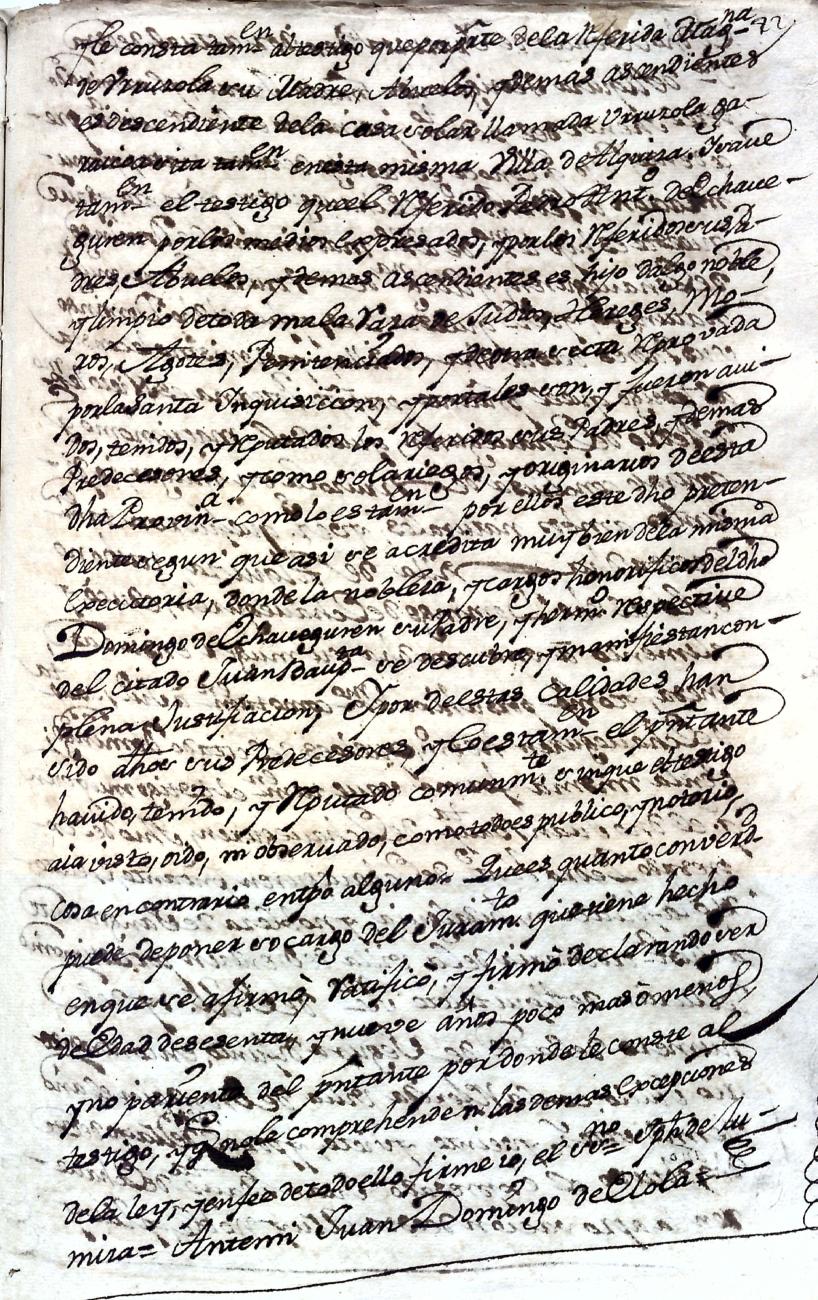 42
y le consta tam.en al testigo que por p.te de la Referida Mag.na
de Urruzola su Madre, Abuelos, y demas ascendientes
es descendiente de la casa solar llamada Urruzola ga-
raicoa sita tam.en en esta misma Villa de Alquiza. Y save
tam.en el testigo que el Referido Pedro Ant.o de Echave-
guren por los medios Expresados, y por los Referidos sus Pa-
dres, Abuelos, y demas ascendientes es hijo dalgo noble,
y limpio de toda mala Raza de Judios, Hereges, Mo-
ros, Agotes, Penitenciados, y de otra secta Reprovada
por la Santa Inquisiccon, y por tales son, y fueron avi-
dos, tenidos, y Reputados los Referidos sus Padres, y demas
Predecesores, y como solariegos, y originarios de esta
dha Provin.a como lo es tam.en por ellos este dho preten-
diente segun que asi se acredita muy bien de la misma
Executoria, donde la nobleza, y cargos honorificos del dho
Domingo de Echaveguren su Padre, y herm.o Respective
del citado Juan Baup.ta se descubre, y manifiestan con
plena Justificacion, Y por de estas Calidades han
sido dhos sus Predecesores, y lo es tam.en el pntante
havido, tenido, y Reputado comunm.te sin que el testigo
aia visto, oido, ni observado, como todo es publico, y notorio,
cosa en contrario en tpo alguno= Que es quanto con verd.d
puede deponer so cargo del Juram.to que tiene hecho
en que se afirmò, Ratificò, y firmò declarando ser
de Edad de sesenta, y nueve años poco mas ò menos,
y no pariente del pntante por donde le conste al
testigo, y q.e no le comprehenden las demas Excepciones
de la ley, y en fee de todo ello firme io, el ss.no Sptt.de lu-
mira= Antemi Juan Domingo de Elola=